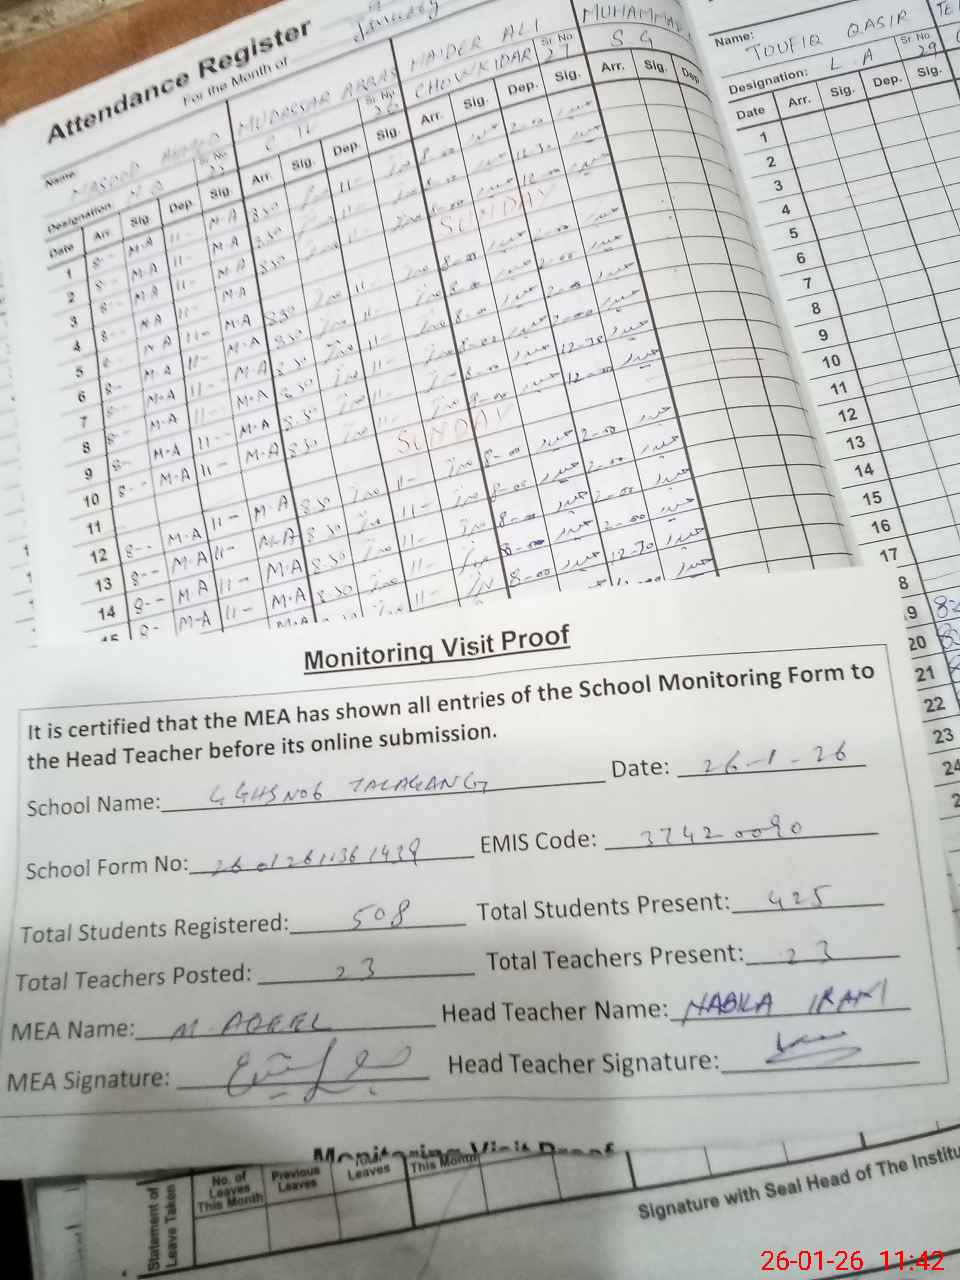 Attendance Register
For the Month of January
Name MASOOD AHMED MUDASSAR ABBAS HAIDER ALI MUHAMMAD
Designation N.Q Sr No. C IV Sr No. 26 CHOWKIDAR Sr No. 27 S G
Date Arr. Sig. Dep. Sig. Arr. Sig. Dep. Sig. Arr. Sig. Dep. Sig. Arr. Sig. Dep.
1 8-- M-A 11- M-A 8.30 11- 8-00 2-00
2 8-- M-A 11- M-A 8.30 11- 8-00 12-30
3 8-- M-A 11- M-A 8.30 11- 8-00 12-00
4 SUNDAY
5 M-A 11- M-A 8.30 11- 8-00 2-00
6 8-- M-A 11- M-A 8.30 11- 8-00 2-00
7 8-- M-A 11- M-A 8.30 11- 8-00 2-00
8 8-- M-A 11- M-A 8.30 11- 8-00 2-00
9 8-- M-A 11- M-A 8.30 11- 8-00 12-30
10 8-- M-A 11- M-A 8.30 11- 8-00 12-00
11 SUNDAY
12 8-- M-A 11- M-A 8.30 11- 8-00 2-00
13 8-- M-A 11- M-A 8.30 11- 8-00 2-00
14 8-- M-A 11- M-A 8.30 11- 8-00 2-00
15 8- M-A 11- M-A 8.30 11- 8-00 2-00
Name: TOUFIQ QASIR
Designation: L.A Sr No. 29
Date Arr. Sig. Dep. Sig.
1
2
3
4
5
6
7
8
9
10
11
12
13
14
15
16
17
8
9
20
21
22
23
24
2
Monitoring Visit Proof
It is certified that the MEA has shown all entries of the School Monitoring Form to
the Head Teacher before its online submission.
School Name: GGHS NO6 TALAGANG Date: 26-1-26
School Form No: 26012611361439 EMIS Code: 37420090
Total Students Registered: 508 Total Students Present: 425
Total Teachers Posted: 23 Total Teachers Present: 23
MEA Name: M. AQEEL Head Teacher Name: NABILA IRAM
MEA Signature: Head Teacher Signature:
Monitoring Visit Proof
Statement of Leave Taken
No. of Leaves This Month Previous Leaves Leaves This Month
Signature with Seal Head of The Institu
26-01-26 11:42